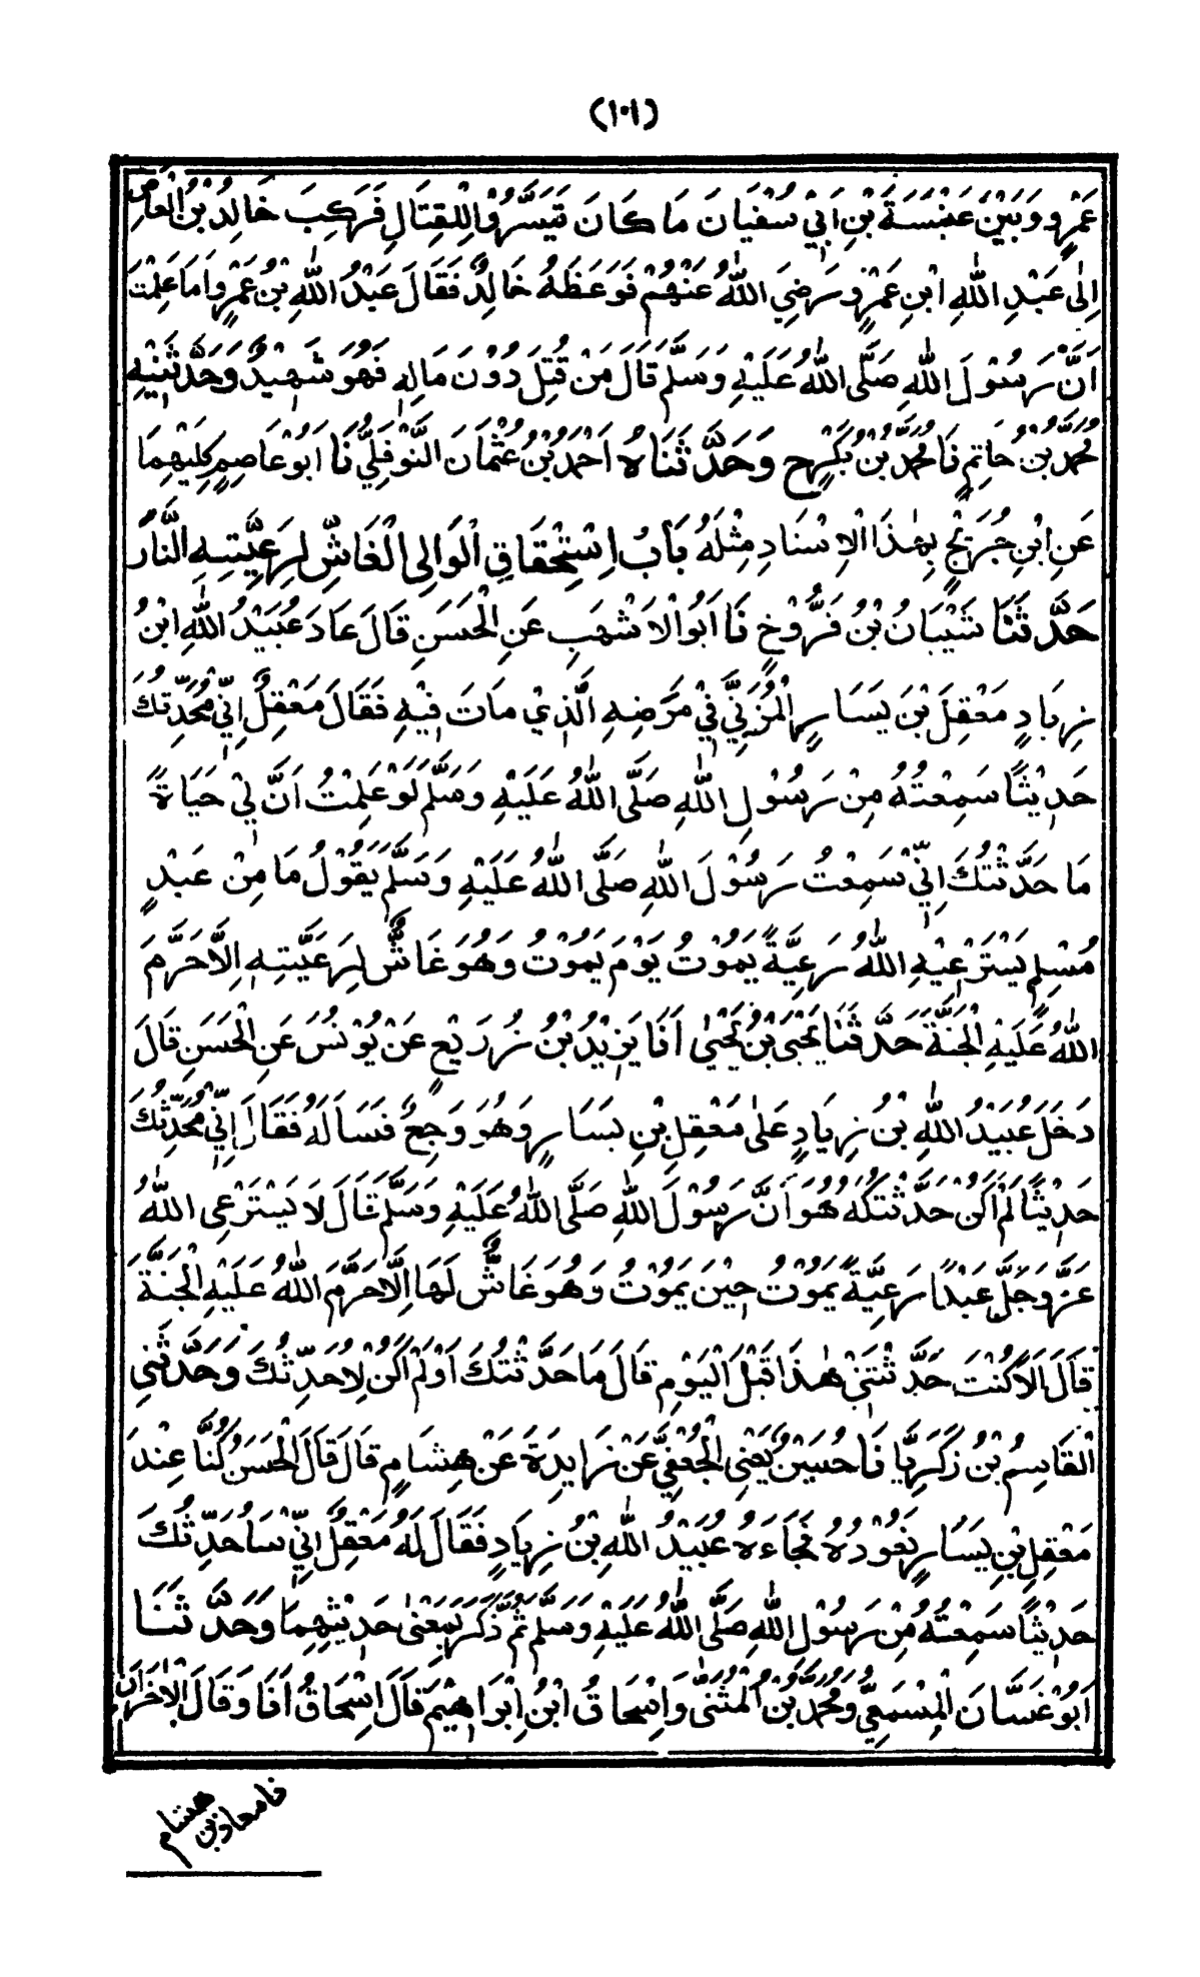 (١٠١)
عَمْرٍو وَبَيْنَ عَنْبَسَةَ بْنِ اَبِيْ سُفْيَانَ مَا كَانَ تَيَسَّرُوْا لِلْقِتَالِ فَرَكِبَ خَالِدُ بْنُ الْعَاصِ
اِلٰى عَبْدِ اللّٰهِ ابْنِ عَمْرٍو رَضِيَ اللّٰهُ عَنْهُمْ فَوَعَظَهُ خَالِدٌ فَقَالَ عَبْدُ اللّٰهِ بْنُ عَمْرٍو اَمَا عَلِمْتَ
اَنَّ رَسُوْلَ اللّٰهِ صَلَّى اللّٰهُ عَلَيْهِ وَسَلَّمَ قَالَ مَنْ قُتِلَ دُوْنَ مَالِهِ فَهُوَ شَهِيْدٌ وَحَدَّثَنِيْهِ
مُحَمَّدُ بْنُ حَاتِمٍ نَا مُحَمَّدُ بْنُ بَكْرٍ ح وَحَدَّثَنَاهُ اَحْمَدُ بْنُ عُثْمَانَ النَّوْفَلِيُّ نَا اَبُوْ عَاصِمٍ كِلَيْهِمَا
عَنِ ابْنِ جُرَيْجٍ بِهٰذَا الْاِسْنَادِ مِثْلَهُ بَابُ اِسْتِحْقَاقِ الْوَالِى الْغَاشِّ لِرَعِيَّتِهِ النَّارَ
حَدَّثَنَا شَيْبَانُ بْنُ فَرُّوْخٍ نَا اَبُو الْاَشْهَبِ عَنِ الْحَسَنِ قَالَ عَادَ عُبَيْدُ اللّٰهِ ابْنُ
زِيَادٍ مَعْقِلَ بْنَ يَسَارٍ الْمُزَنِيَّ فِيْ مَرَضِهِ الَّذِيْ مَاتَ فِيْهِ فَقَالَ مَعْقِلٌ اِنِّيْ مُحَدِّثُكَ
حَدِيْثًا سَمِعْتُهُ مِنْ رَسُوْلِ اللّٰهِ صَلَّى اللّٰهُ عَلَيْهِ وَسَلَّمَ لَوْ عَلِمْتُ اَنَّ لِيْ حَيَاةً
مَا حَدَّثْتُكَ اِنِّيْ سَمِعْتُ رَسُوْلَ اللّٰهِ صَلَّى اللّٰهُ عَلَيْهِ وَسَلَّمَ يَقُوْلُ مَا مِنْ عَبْدٍ
مُسْلِمٍ يَسْتَرْعِيْهِ اللّٰهُ رَعِيَّةً يَمُوْتُ يَوْمَ يَمُوْتُ وَهُوَ غَاشٌّ لِرَعِيَّتِهِ اِلَّا حَرَّمَ
اللّٰهُ عَلَيْهِ الْجَنَّةَ حَدَّثَنَا يَحْيَى بْنُ يَحْيٰى اَنَا يَزِيْدُ بْنُ زُرَيْعٍ عَنْ يُوْنُسَ عَنِ الْحَسَنِ قَالَ
دَخَلَ عُبَيْدُ اللّٰهِ بْنُ زِيَادٍ عَلٰى مَعْقِلِ بْنِ يَسَارٍ وَهُوَ وَجِعٌ فَسَاَلَهُ فَقَالَ اِنِّيْ مُحَدِّثُكَ
حَدِيْثًا لَمْ اَكُنْ حَدَّثْتُكَهُ هُوَ اَنَّ رَسُوْلَ اللّٰهِ صَلَّى اللّٰهُ عَلَيْهِ وَسَلَّمَ قَالَ لَا يَسْتَرْعِى اللّٰهُ
عَزَّ وَجَلَّ عَبْدًا رَعِيَّةً يَمُوْتُ حِيْنَ يَمُوْتُ وَهُوَ غَاشٌّ لَهَا اِلَّا حَرَّمَ اللّٰهُ عَلَيْهِ الْجَنَّةَ
قَالَ اَلَا كُنْتَ حَدَّثْتَنِيْ هٰذَا قَبْلَ الْيَوْمِ قَالَ مَا حَدَّثْتُكَ اَوْ لَمْ اَكُنْ لِاُحَدِّثُكَ وَحَدَّثَنِي
الْقَاسِمُ بْنُ زَكَرِيَّا نَا حُسَيْنٌ يَعْنِي الْجُعْفِيَّ عَنْ زَايِدَةَ عَنْ هِشَامٍ قَالَ قَالَ الْحَسَنُ كُنَّا عِنْدَ
مَعْقِلِ بْنِ يَسَارٍ نَعُوْدُهُ فَجَاءَهُ عُبَيْدُ اللّٰهِ بْنُ زِيَادٍ فَقَالَ لَهُ مَعْقِلٌ اِنِّيْ سَاُحَدِّثُكَ
حَدِيْثًا سَمِعْتُهُ مِنْ رَسُوْلِ اللّٰهِ صَلَّى اللّٰهُ عَلَيْهِ وَسَلَّمَ ثُمَّ ذَكَرَ بِمَعْنٰى حَدِيْثِهِمَا وَحَدَّثَنَا
اَبُوْ غَسَّانَ الْمِسْمَعِيُّ وَمُحَمَّدُ بْنُ الْمُثَنّٰى وَاِسْحَاقُ ابْنُ اِبْرَاهِيْمَ قَالَ اِسْحَاقُ اَنَا وَقَالَ الْاٰخَرَانِ
نا معاذ بن هشام